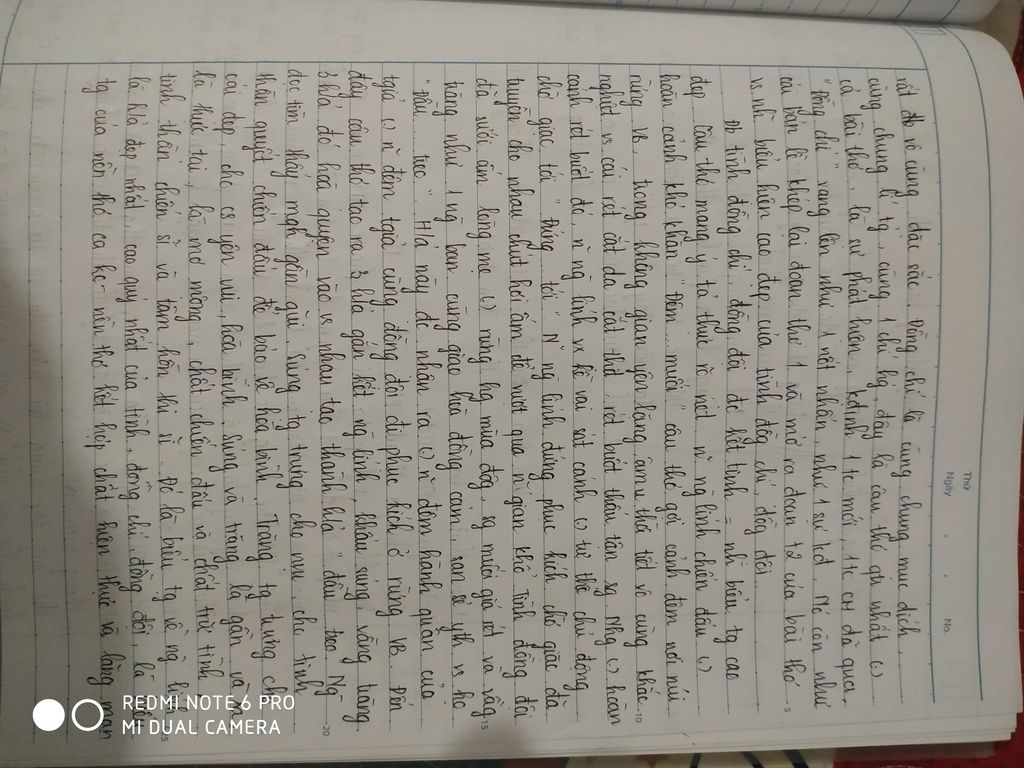 Thứ
Ngày . . No.
rất vô cùng đặc sắc. Đồng chí là cùng chung mục đích,
cùng chung lí tg, cùng 1 chí hg, đây là câu thơ gh nhất
cả bài thơ, là sự phát hiện, kđịnh 1 tc mới, 1 tc cm đã qua.
"Đồng chí" vang lên như 1 nốt nhấn, như 1 sự kđ. Nó còn như
cái bản lề khép lại đoạn thơ 1 và mở ra đoạn t2 của bài thơ
vs nh~ biểu hiện cao đẹp của tình đồg chí, đồg đội.
Đb tình đồng chí, đồng đội đc kết tinh = nh~ biểu tg cao
đẹp. Câu thơ mang ý tả thực rõ nét n~ ng lính chiến đấu
hoàn cảnh khó khăn "Đêm... muối" câu thơ gợi cảnh đêm nơi núi
rừng VB, trong không gian yên lặng, âm u thời tiết vô cùng khắc
nghiệt vs cái rét cắt da cắt thịt, rét buốt thấu tận sg. Nhg hoàn
cảnh rét buốt đó, n~ ng lính vx kề vai sát cánh tư thế chủ động
chờ giặc tới "Đứng... tới". N~ ng lính đứng phục kích chờ giặc đã
truyền cho nhau chút hơi ấm để vượt qua n~ gian khổ. Tình đồng đội
đã sưởi ấm lòng họ rừng hg mùa đôg, sg muối giá rét và vầg
trăng như 1 ng bạn cùng giao hoà đồng cảm, san sẻ vs họ
"Đầu... treo". H/á này đc nhận ra n~ đêm hành quân của
tgiả n~ đêm tgiả cùng đồng đội đi phục kích ở rừng VB. Đến
đây câu thơ tạo ra 3 h/a gắn kết: ng lính, khẩu súng, vầng trăng.
3 h/a đó hoà quyện vào vs nhau tạo thành h/a "đầu... treo. Ng
đọc tìm thấy mqh gần gũi. Súng tg trưng cho nvụ, cho tinh
thần quyết chiến đấu để bảo vệ hoà bình. Trăng tg trưng cho
cái đẹp, cho cs yên vui, hoà bình. Súng và trăng là gần và
là thực tại, là mơ mộng, chất chiến đấu và chất trữ tình
tinh thần chiến sĩ và tâm hồn thi sĩ. Đó là biểu tg về ng
là h/a đẹp nhất, cao quý nhất của tình đồng chí, đồng đội, là
tg của nền thơ ca k/c - nền thơ kết hợp chất hiện thực và lãng mạn
5
10
15
20
25
REDMI NOTE 6 PRO
MI DUAL CAMERA